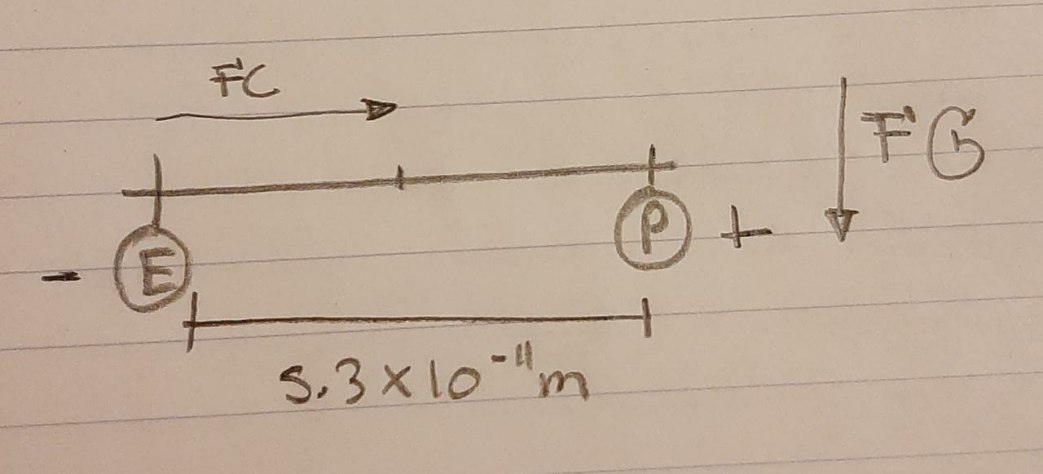 FC
FG
E
P
-
+
5.3×10⁻¹¹m